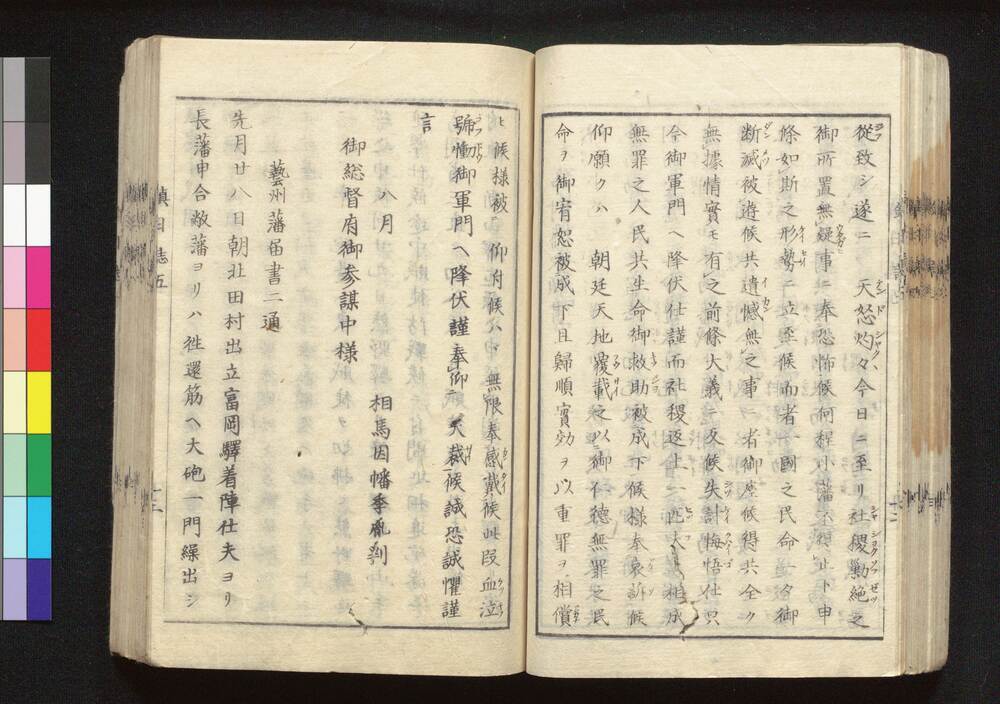 従致シ遂ニ 天怒灼々今日ニ至リ社稷勦絶之
御所置無疑事ニ奉恐怖候何程小藩不得止ト申
條如斯之形勢ニ立至候而者一國之民命
断滅被遊候共遺憾無之事ニ者御座候得共全ク
無據情實モ有之前條大義ニ反候失計悔悟仕只
今御軍門ヘ降伏仕謹而社稷返上一
無罪之人民共生命御救助被成下候様奉哀訴候
仰願クハ 朝廷天地覆載之以御仁德無罪之民
命ヲ御宥恕被成下且歸順實効ヲ以重罪ヲ相償
ヒ候様被 仰付候ハヽ無限奉感戴候此段血泣
號慟御軍門ヘ降伏謹奉仰 天裁候誠恐誠懼謹
言
八月 相馬因幡季胤判
御総督府御参謀中様
藝州藩届書二通
先月廿八日朝北田村出立富岡驛着陣仕夫ヨリ
長藩申合敝藩ヨリハ徃還筋ヘ大砲一門繰出シ
鎮日誌五